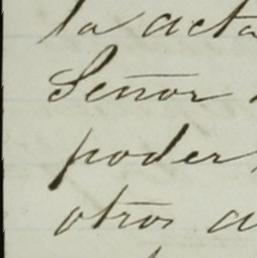 la acta
Señor
poder
otros a